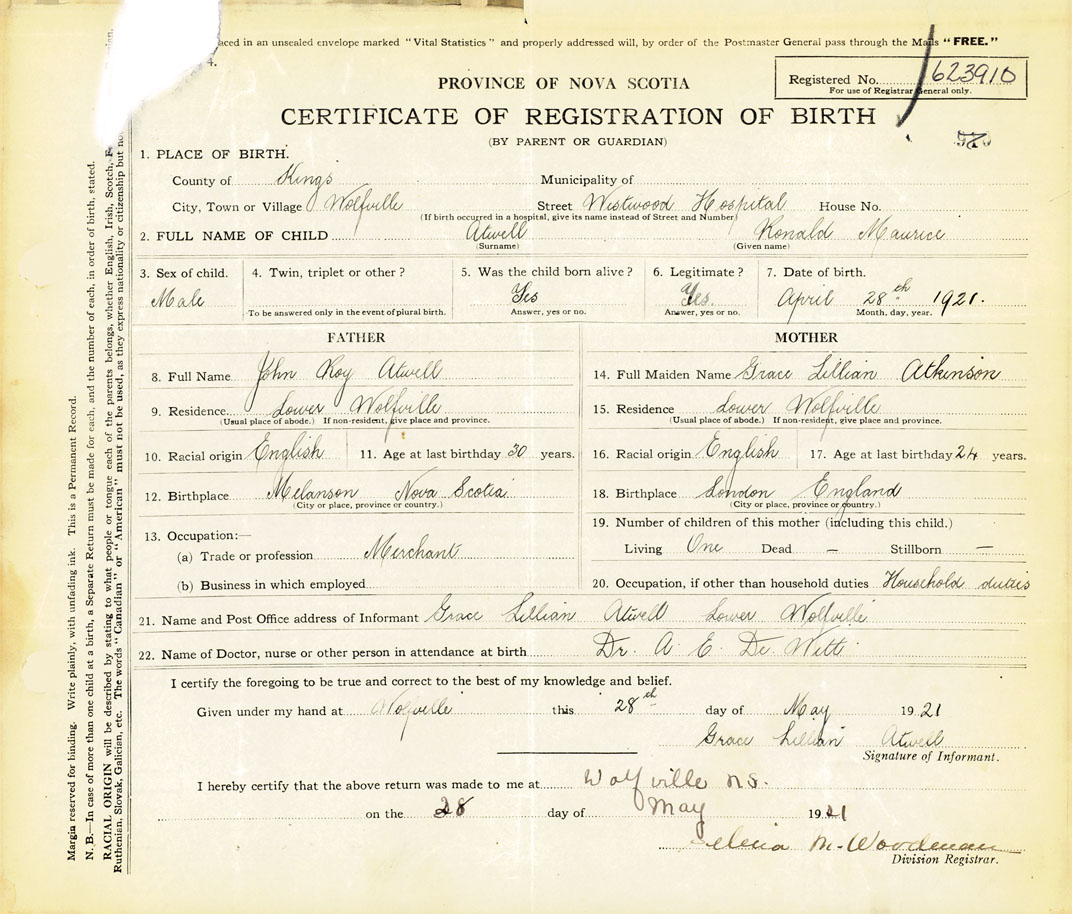 aced in an unsealed envelope marked "Vital Statistics" and properly addressed will, by order of the Postmaster General pass through the Mails "FREE."
4.
Registered No. 623910
For use of Registrar General only.
PROVINCE OF NOVA SCOTIA
CERTIFICATE OF REGISTRATION OF BIRTH
(BY PARENT OR GUARDIAN)
1. PLACE OF BIRTH.
County of Kings Municipality of
City, Town or Village Wolfville Street Westwood Hospital House No.
(If birth occurred in a hospital, give its name instead of Street and Number)
2. FULL NAME OF CHILD Atwell Ronald Maurice
(Surname) (Given name)
3. Sex of child. 4. Twin, triplet or other? 5. Was the child born alive? 6. Legitimate? 7. Date of birth.
Male Yes Yes. April 28th 1921.
To be answered only in the event of plural birth. Answer, yes or no. Answer, yes or no. Month, day, year.
FATHER
8. Full Name John Roy Atwell
9. Residence Lower Wolfville
(Usual place of abode.) If non-resident, give place and province.
10. Racial origin English 11. Age at last birthday 30 years.
12. Birthplace Melanson Nova Scotia
(City or place, province or country.)
13. Occupation:—
(a) Trade or profession Merchant
(b) Business in which employed
MOTHER
14. Full Maiden Name Grace Lillian Atkinson
15. Residence Lower Wolfville
(Usual place of abode.) If non-resident, give place and province.
16. Racial origin English 17. Age at last birthday 24 years.
18. Birthplace London England
(City or place, province or country.)
19. Number of children of this mother (including this child.)
Living One Dead — Stillborn —
20. Occupation, if other than household duties Household duties
21. Name and Post Office address of Informant Grace Lillian Atwell Lower Wolfville
22. Name of Doctor, nurse or other person in attendance at birth Dr. A. E. De Witt
I certify the foregoing to be true and correct to the best of my knowledge and belief.
Given under my hand at Wolfville this 28th day of May 1921
Grace Lillian Atwell
Signature of Informant.
I hereby certify that the above return was made to me at Wolfville N.S.
on the 28 day of May 1921
M. Woodman
Division Registrar.
Margin reserved for binding. Write plainly, with unfading ink. This is a Permanent Record.
N. B.—In case of more than one child at a birth, a Separate Return must be made for each, and the number of each, in order of birth, stated.
RACIAL ORIGIN will be described by stating to what people or tongue each of the parents belongs, whether English, Irish, Scotch,
Ruthenian, Slovak, Galician, etc. The words "Canadian" or "American" must not be used, as they express nationality or citizenship but no